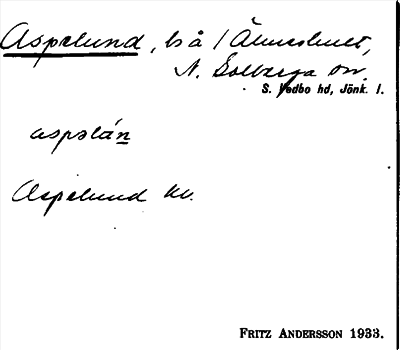 Aspelund, ls å 1 Älmeshult,
N. Solberga sn.
S. Vedbo hd, Jönk. l.
aspəlán
Aspelund kv.
FRITZ ANDERSSON 1933.